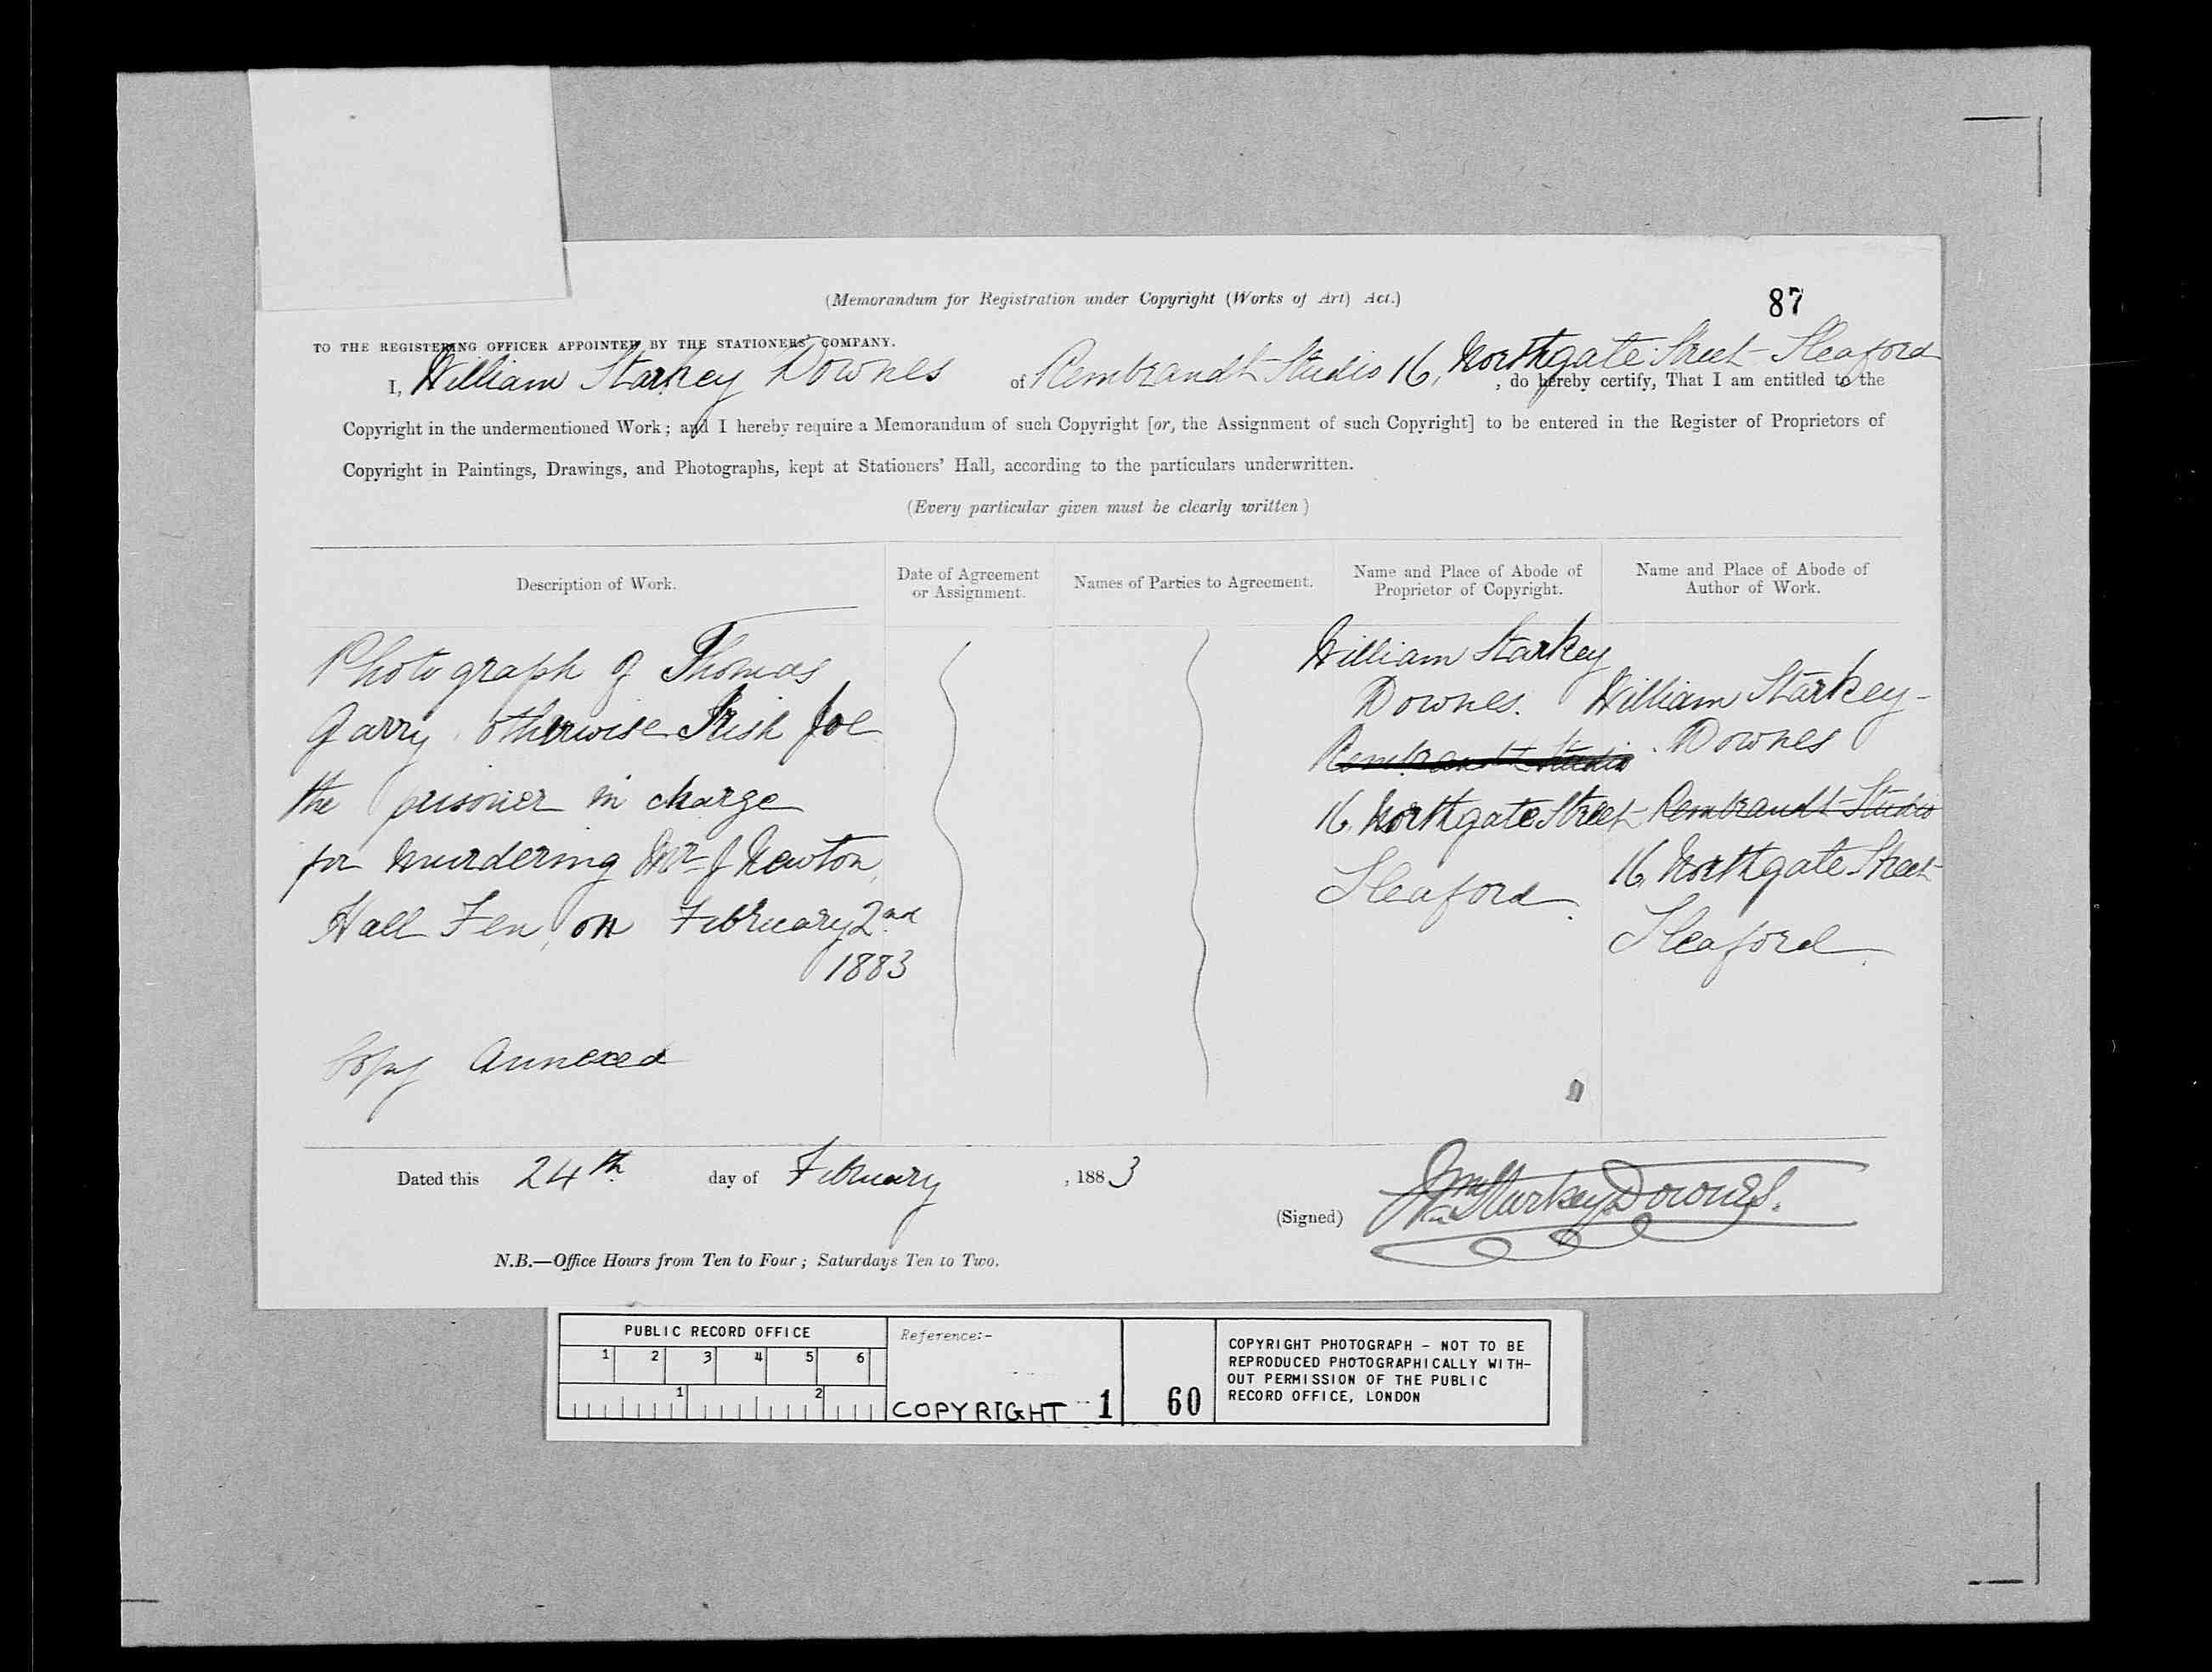 (Memorandum for Registration under Copyright (Works of Art) Act.)
87
TO THE REGISTERING OFFICER APPOINTED BY THE STATIONERS' COMPANY.
I, William Starkey Downes of Rembrandt Studio 16, Northgate Street Sleaford, do hereby certify, That I am entitled to the
Copyright in the undermentioned Work; and I hereby require a Memorandum of such Copyright [or, the Assignment of such Copyright] to be entered in the Register of Proprietors of
Copyright in Paintings, Drawings, and Photographs, kept at Stationers' Hall, according to the particulars underwritten.
(Every particular given must be clearly written)
Description of Work.
Date of Agreement
or Assignment.
Names of Parties to Agreement.
Name and Place of Abode of
Proprietor of Copyright.
Name and Place of Abode of
Author of Work.
Photograph of Thomas
Garry, otherwise Irish Joe
the prisoner in charge
for murdering Mr J Newton,
Hall Fen, on February 2nd
1883
Copy Annexed
William Starkey
Downes.
Rembrandt Studio
16, Northgate Street
Sleaford.
William Starkey
Downes
Rembrandt Studio
16, Northgate Street
Sleaford.
Dated this 24th day of February, 1883
(Signed) Wm Starkey Downes.
N.B.—Office Hours from Ten to Four; Saturdays Ten to Two.
PUBLIC RECORD OFFICE
1 2 3 4 5 6
1 2
Reference:-
COPYRIGHT 1 60
COPYRIGHT PHOTOGRAPH - NOT TO BE
REPRODUCED PHOTOGRAPHICALLY WITH-
OUT PERMISSION OF THE PUBLIC
RECORD OFFICE, LONDON